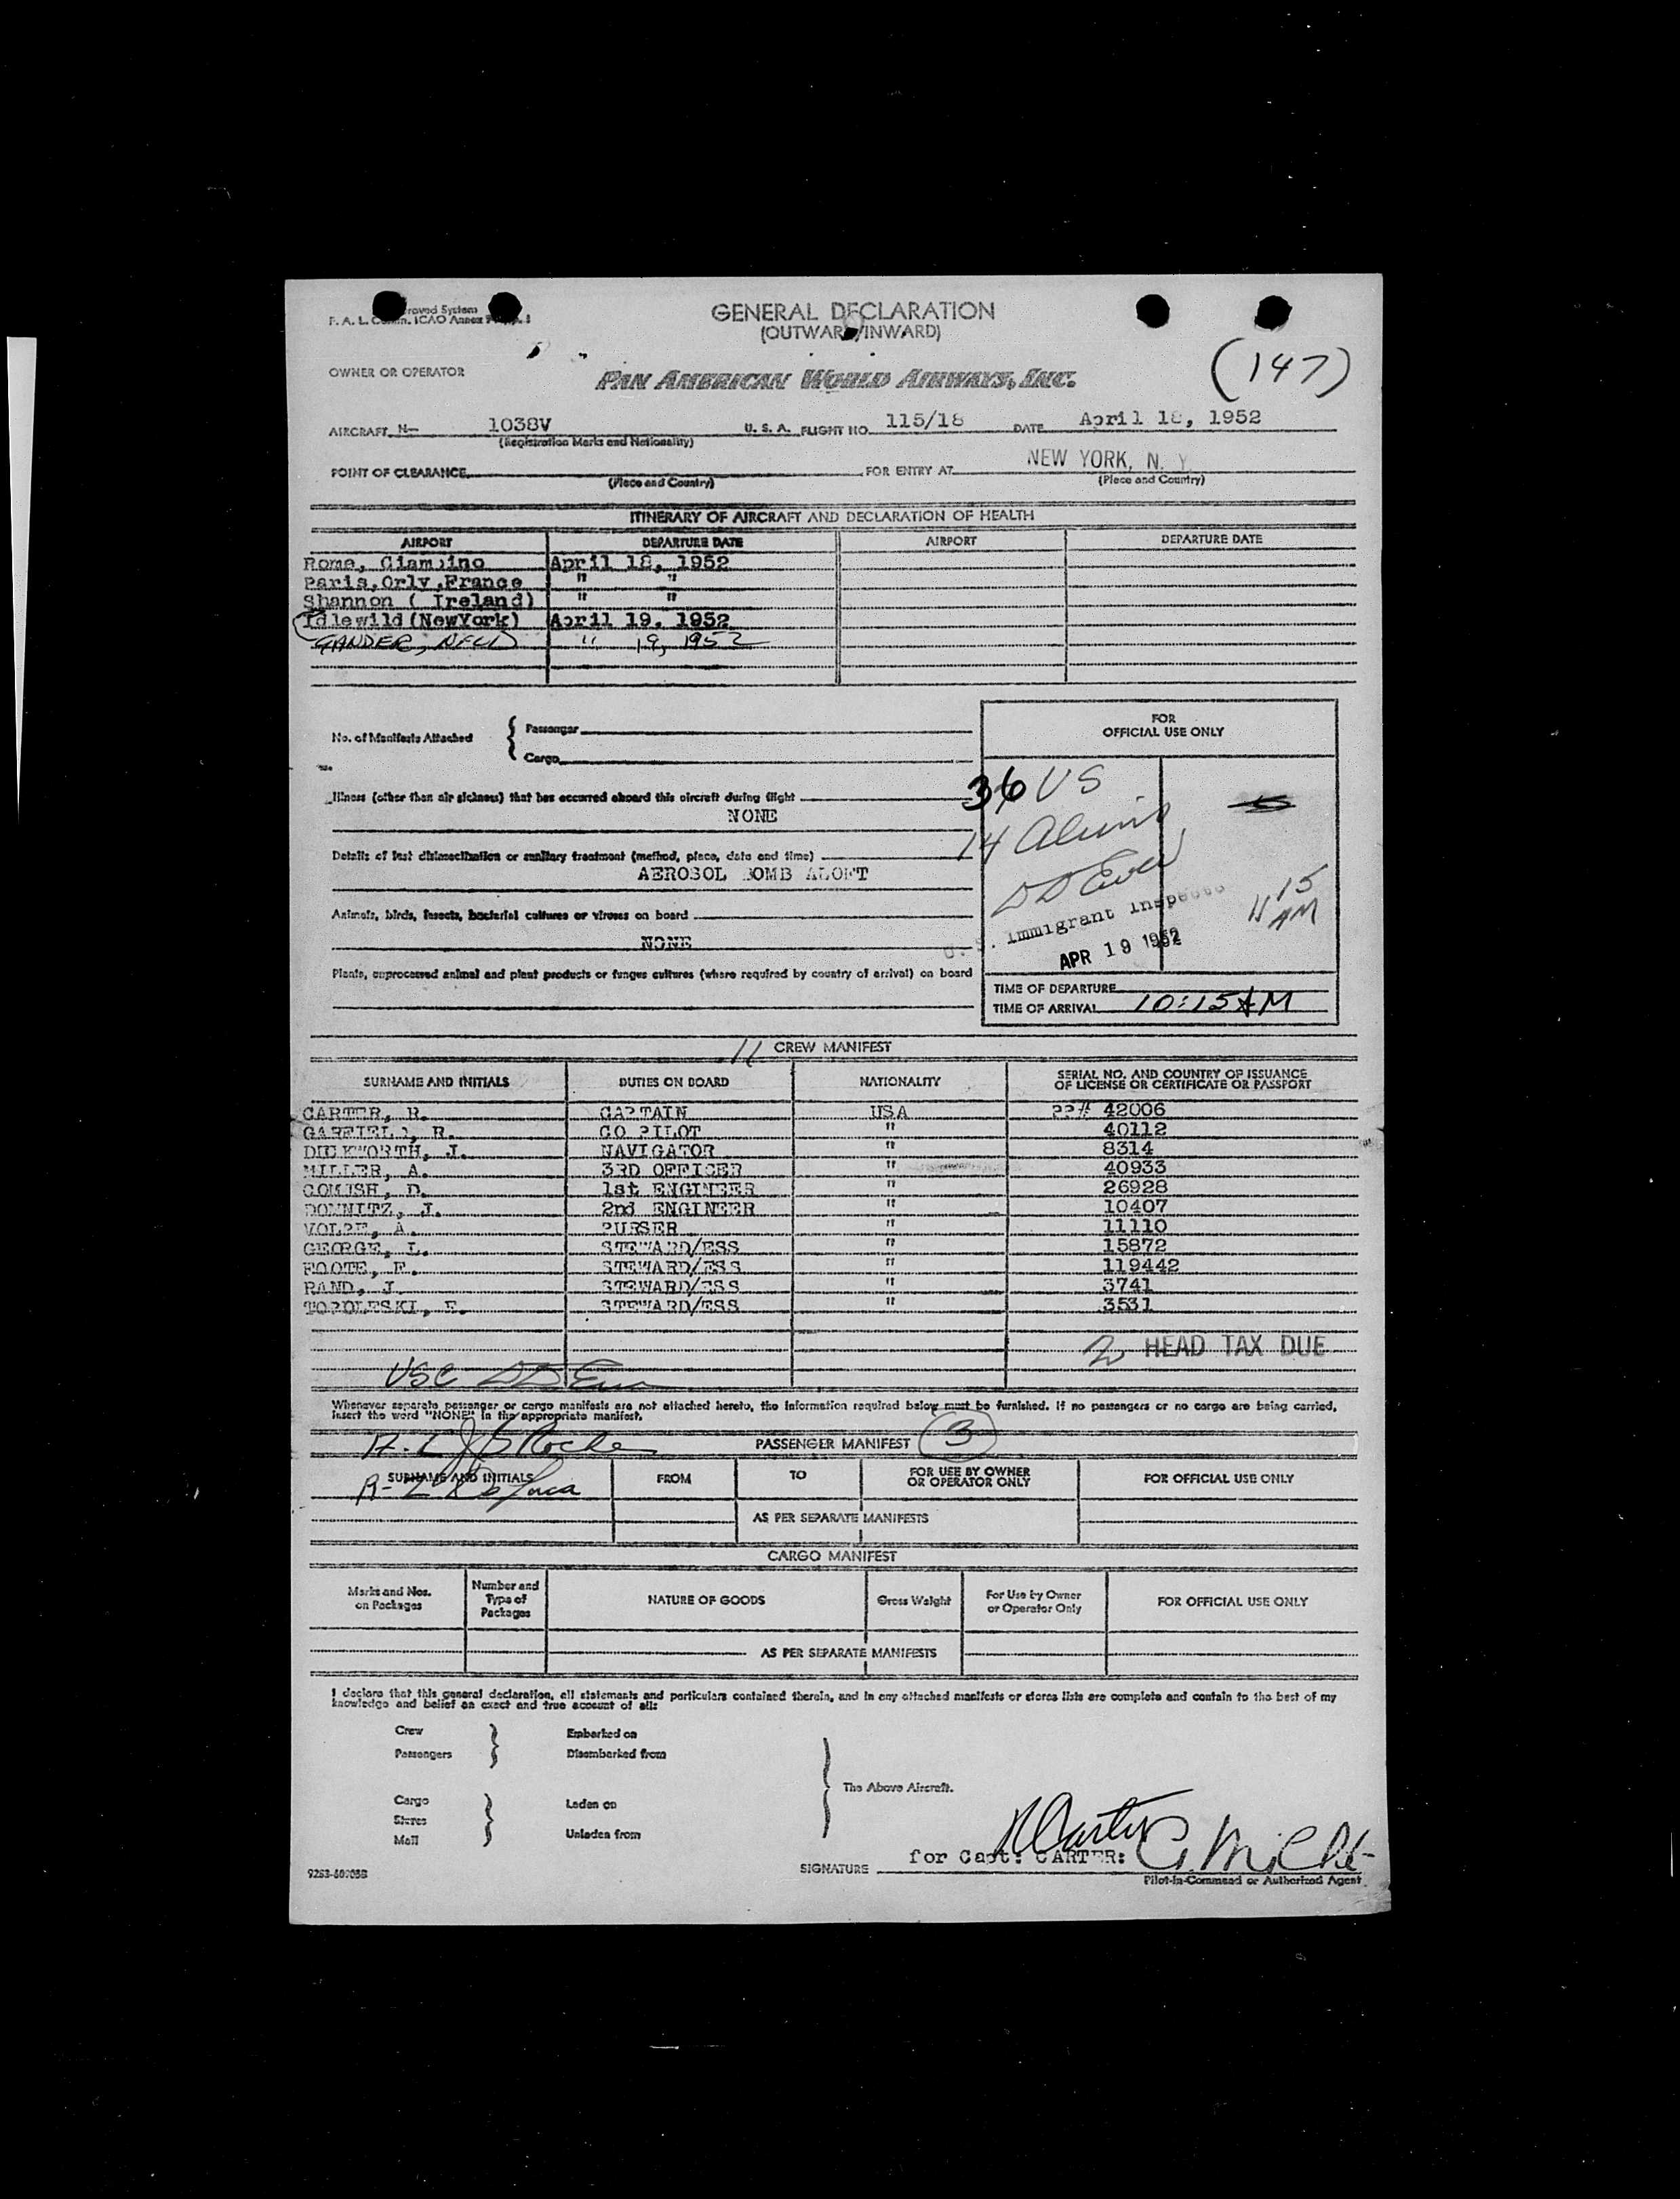 GENERAL DECLARATION
(OUTWARD/INWARD)
F. A. L. ICAO Annex
OWNER OR OPERATOR
PAN AMERICAN WORLD AIRWAYS, INC.
(147)
AIRCRAFT N- 1038V U. S. A. FLIGHT NO. 115/18 DATE April 18, 1952
(Registration Marks and Nationality)
POINT OF CLEARANCE FOR ENTRY AT NEW YORK, N. Y.
(Place and Country) (Place and Country)
ITINERARY OF AIRCRAFT AND DECLARATION OF HEALTH
AIRPORT DEPARTURE DATE AIRPORT DEPARTURE DATE
Rome, Ciampino April 18, 1952
Paris, Orly, France " "
Shannon ( Ireland) " "
Idlewild (NewYork) April 19, 1952
GANDER, NFLD " 19, 1952
FOR
OFFICIAL USE ONLY
No. of Manifests Attached { Passenger
Cargo
36 US
Illness (other than air sickness) that has occurred aboard this aircraft during flight
NONE
14 Aliens
Details of last disinsectization or sanitary treatment (method, place, date and time)
AEROSOL BOMB ALOFT
Animals, birds, insects, bacterial cultures or viruses on board
NONE
U. S. Immigrant Inspector
APR 19 1952
11 15 AM
Plants, unprocessed animal and plant products or fungus cultures (where required by country of arrival) on board
TIME OF DEPARTURE
TIME OF ARRIVAL 10:15 AM
11 CREW MANIFEST
SURNAME AND INITIALS DUTIES ON BOARD NATIONALITY SERIAL NO. AND COUNTRY OF ISSUANCE
OF LICENSE OR CERTIFICATE OR PASSPORT
CARTER, R. CAPTAIN USA PP# 42006
GARFIELD, R. CO PILOT " 40112
DUCKWORTH, J. NAVIGATOR " 8314
MILLER, A. 3RD OFFICER " 40933
COMISH, D. 1st ENGINEER " 26928
DONNITZ, J. 2nd ENGINEER " 10407
VOLPE, A. PURSER " 11110
GEORGE, L. STEWARD/ESS " 15872
FOOTE, F. STEWARD/ESS " 119442
RAND, J. STEWARD/ESS " 3741
TOPOLESKI, E. STEWARD/ESS " 3531
2 HEAD TAX DUE
USC
Whenever separate passenger or cargo manifests are not attached hereto, the information required below must be furnished. If no passengers or no cargo are being carried,
insert the word "NONE" in the appropriate manifest.
PASSENGER MANIFEST (3)
SURNAME AND INITIALS FROM TO FOR USE BY OWNER
OR OPERATOR ONLY FOR OFFICIAL USE ONLY
AS PER SEPARATE MANIFESTS
CARGO MANIFEST
Marks and Nos.
on Packages Number and
Type of
Packages NATURE OF GOODS Gross Weight For Use by Owner
or Operator Only FOR OFFICIAL USE ONLY
AS PER SEPARATE MANIFESTS
I declare that this general declaration, all statements and particulars contained therein, and in any attached manifests or stores lists are complete and contain to the best of my
knowledge and belief an exact and true account of all:
Crew Embarked on
Passengers Disembarked from
The Above Aircraft.
Cargo Laden on
Stores
Mail Unladen from
R Carter
for Capt. CARTER:
SIGNATURE
Pilot-in-Command or Authorized Agent